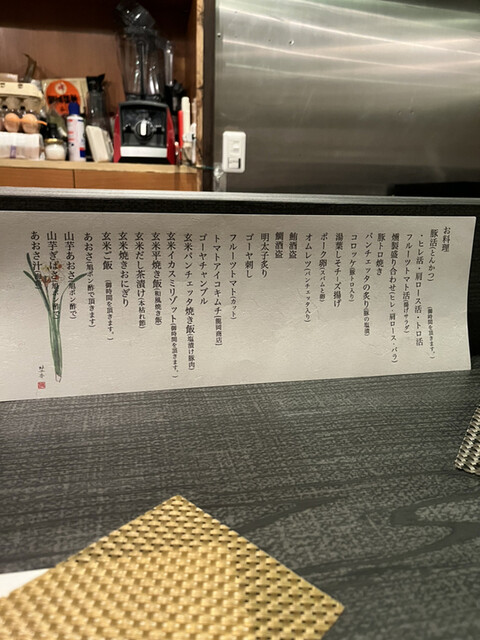 お料理
豚活(とんかつ) (御時間を頂きます。)
・ヒレ活・肩ロース活・トロ活
フルーツトマト活(揚げサラダ)
燻製盛り合わせ(ヒレ・肩ロース・バラ)
豚トロ焼き
パンチェッタの炙り(豚の塩漬)
コロッケ(豚トロ入り)
湯葉しそチーズ揚げ
ポーク卵(スパムと卵)
オムレツ(パンチェッタ入り)
鮪酒盗
鯛酒盗
明太子炙り
ゴーヤ刺し
フルーツトマト(カット)
トマトアイコキムチ(鶴岡商店)
ゴーヤチャンプル
玄米パンチェッタ焼き飯(塩漬け豚肉)
玄米イカスミリゾット(御時間を頂きます。)
玄米平焼き飯(和風焼き飯)
玄米だし茶漬け(本枯れ節)
玄米焼きおにぎり
玄米ご飯 (御時間を頂きます。)
あおさ(旭ポン酢で頂きます)
山芋あおさ(旭ポン酢で)
山芋ぎばさ(旭ポン酢で)
あおさ汁